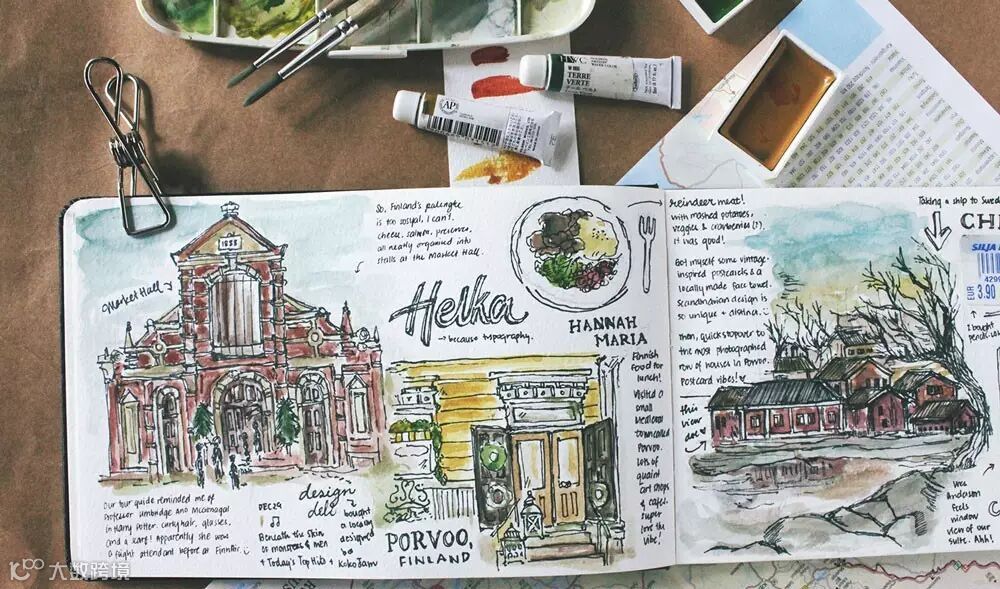 W&N
TERRE
VERTE
AP
1888
Market Hall
So, Finland's palengke
is too sosyal, I can't.
cheese, salmon, preserves,
all neatly organised into
stalls at the Market Hall.
Helka
→ because typography.
HANNAH
MARIA
Finnish
food for
lunch!
Visited a
small
medieval
town called
Porvoo.
Lots of
quaint
art shops
& cafes.
super
love the
vibe!
Our tour guide reminded me of
Professor Umbridge and McGonagall
in Harry Potter. curly hair, glasses,
and a scarf! Apparently she was
a flight attendant before at Finnair.
DEC 29
Beneath the Skin
of monsters & men
+ Today's Top Hits + Koko Jam
design
deli
bought
a locally
designed
PORVOO,
FINLAND
reindeer meat!
with mashed potatoes,
veggies & cranberries (?).
it was good!
Got myself some vintage-
inspired postcards & a
locally made face towel.
Scandinavian design is
so unique + distinct.
Then, quick stopover to
the most photographed
row of houses in Porvoo.
Postcard vibes!
this
view
doe
Taking a ship to Swed
SILJA
EUR
3.90
I bought
Wes
Anderson
feels
window
view of our
suite. Ahh!
大数跨境